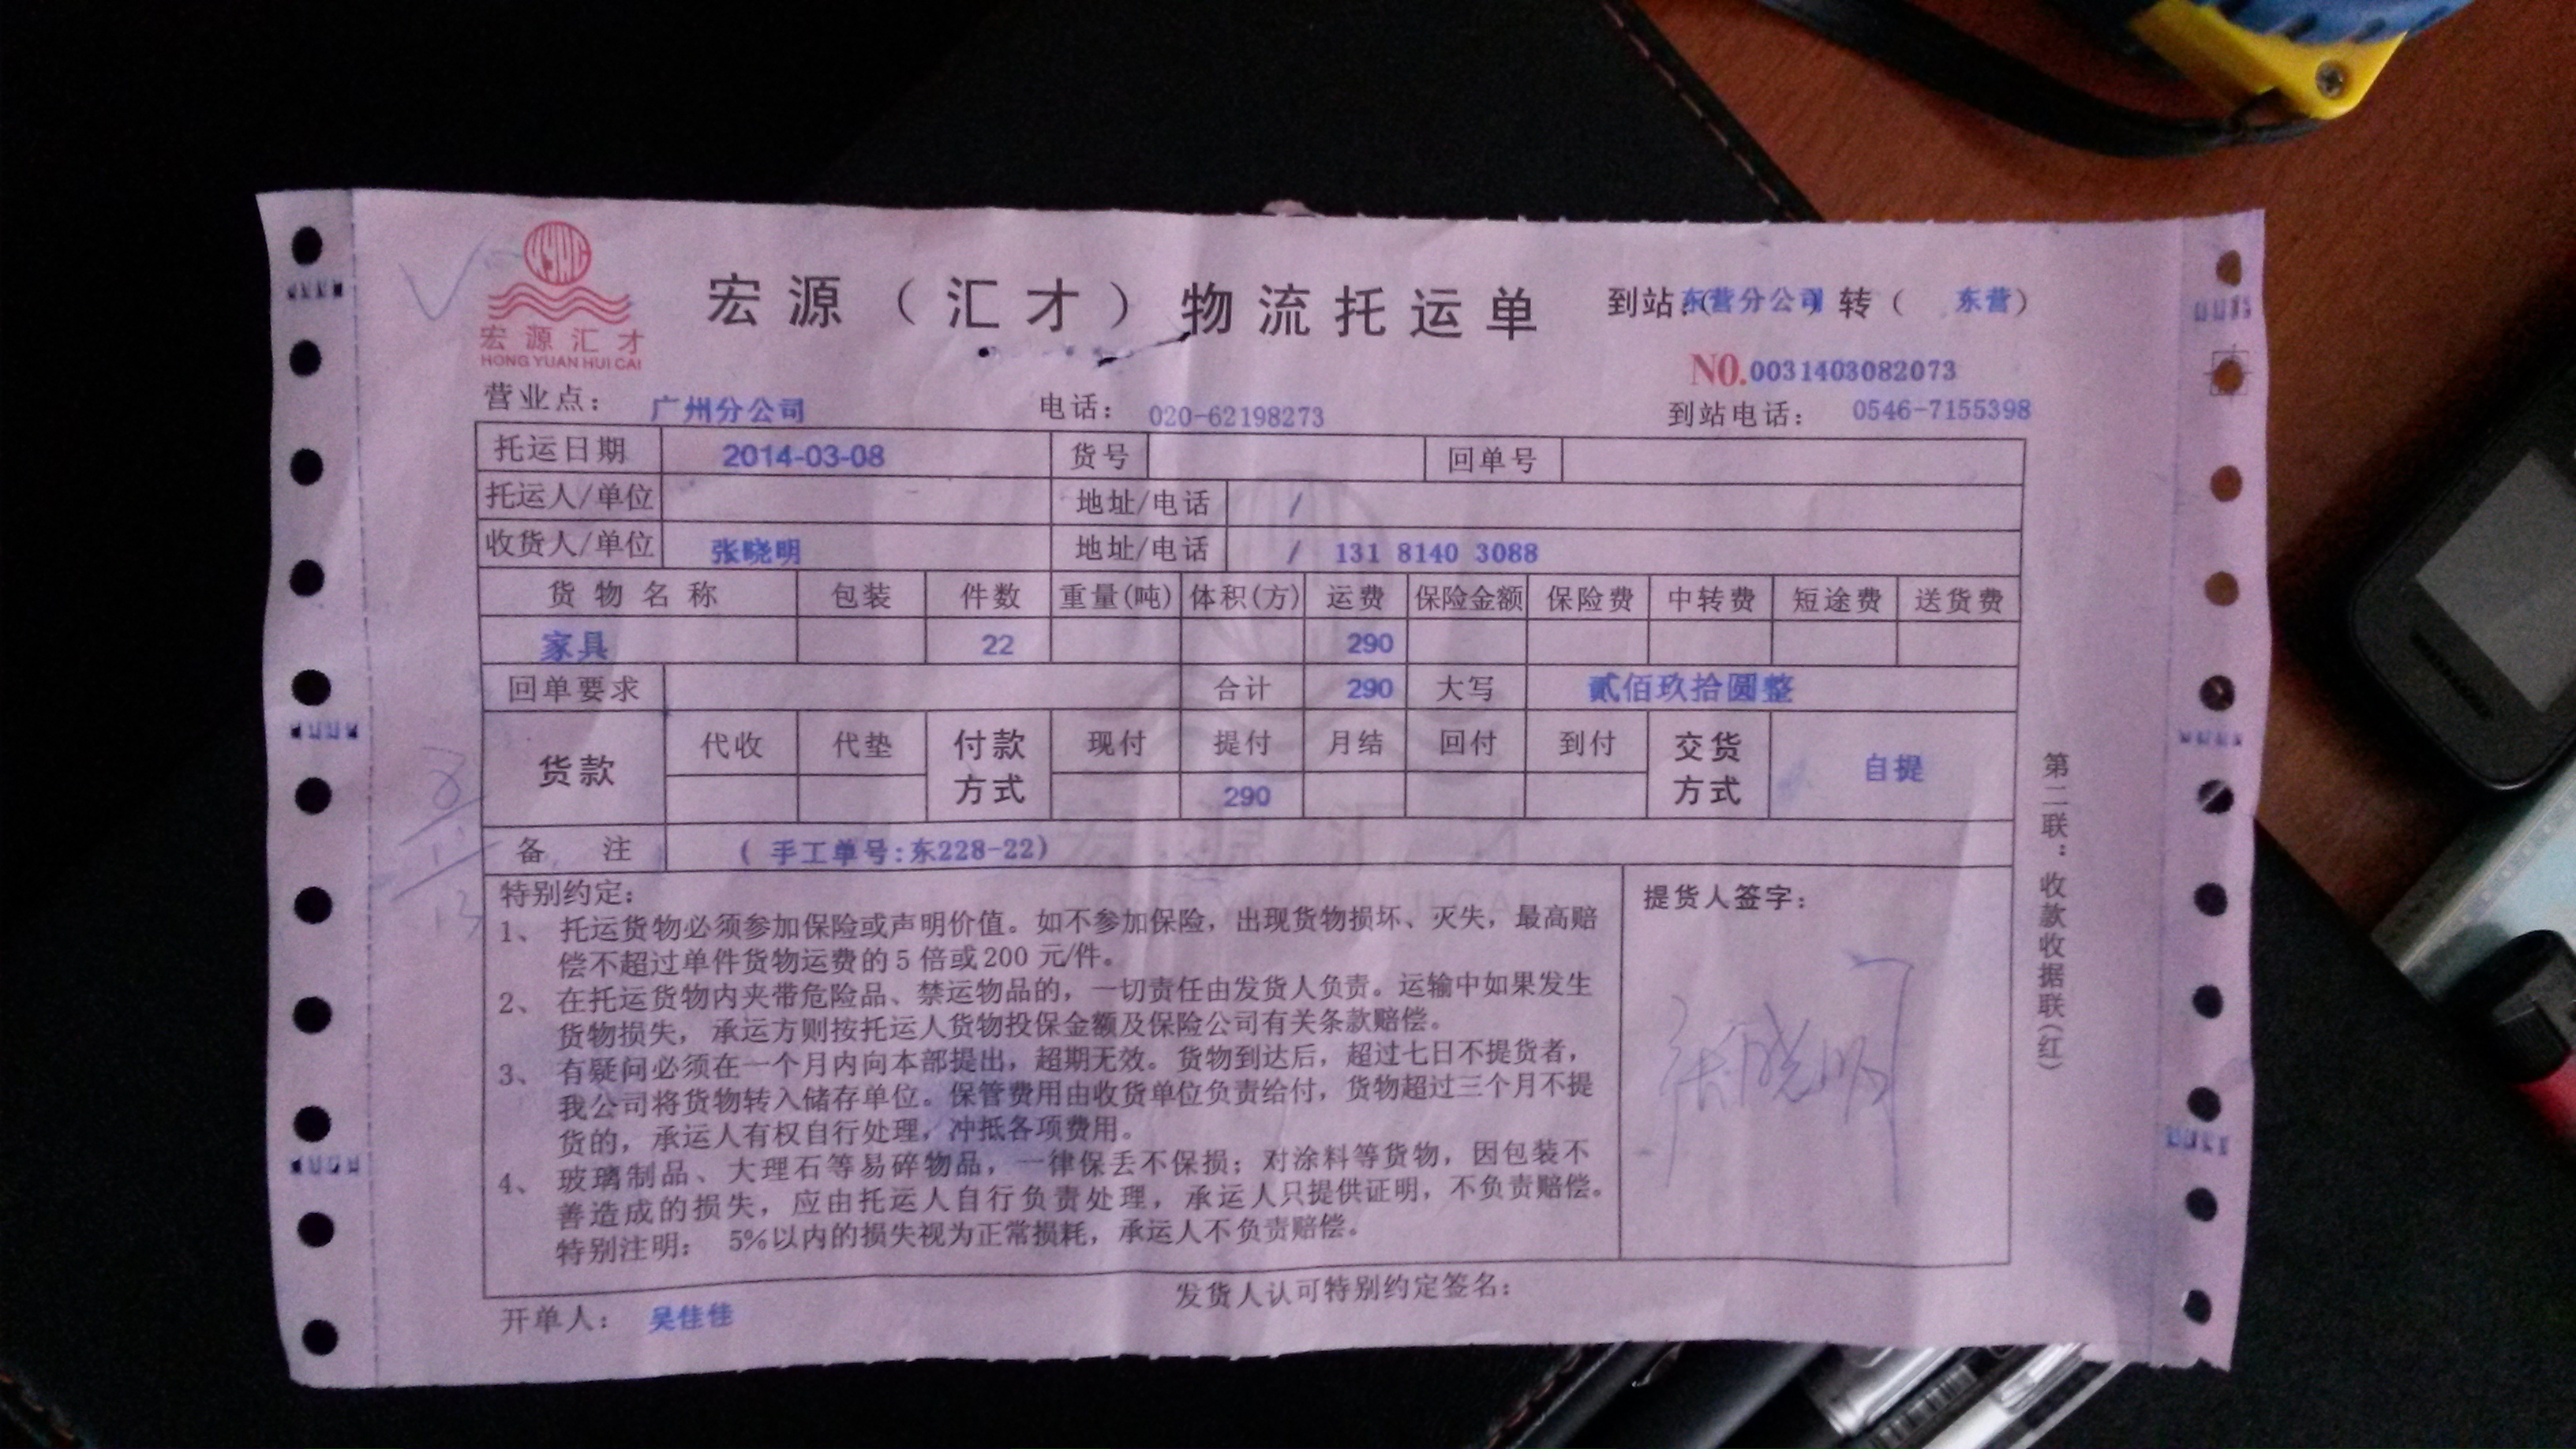 宏源汇才
HONG YUAN HUI CAI
宏源（汇才）物流托运单
到站：东营分公司 转（ 东营）
NO.0031403082073
营业点： 广州分公司 电话： 020-62198273 到站电话： 0546-7155398
托运日期 2014-03-08 货号 回单号
托运人/单位 地址/电话 /
收货人/单位 张晓明 地址/电话 / 131 8140 3088
货物名称 包装 件数 重量(吨) 体积(方) 运费 保险金额 保险费 中转费 短途费 送货费
家具 22 290
回单要求 合计 290 大写 贰佰玖拾圆整
货款 代收 代垫 付款方式 现付 提付 月结 回付 到付 交货方式 自提
290
备 注 ( 手工单号:东228-22)
特别约定：
1、托运货物必须参加保险或声明价值。如不参加保险，出现货物损坏、灭失，最高赔
偿不超过单件货物运费的5倍或200元/件。
2、在托运货物内夹带危险品、禁运物品的，一切责任由发货人负责。运输中如果发生
货物损失，承运方则按托运人货物投保金额及保险公司有关条款赔偿。
3、有疑问必须在一个月内向本部提出，超期无效。货物到达后，超过七日不提货者，
我公司将货物转入储存单位。保管费用由收货单位负责给付，货物超过三个月不提
货的，承运人有权自行处理，冲抵各项费用。
4、玻璃制品、大理石等易碎物品，一律保丢不保损；对涂料等货物，因包装不
善造成的损失，应由托运人自行负责处理，承运人只提供证明，不负责赔偿。
特别注明：5%以内的损失视为正常损耗，承运人不负责赔偿。
提货人签字：
张晓明
开单人： 吴佳佳 发货人认可特别约定签名：
第二联：收款收据联（红）